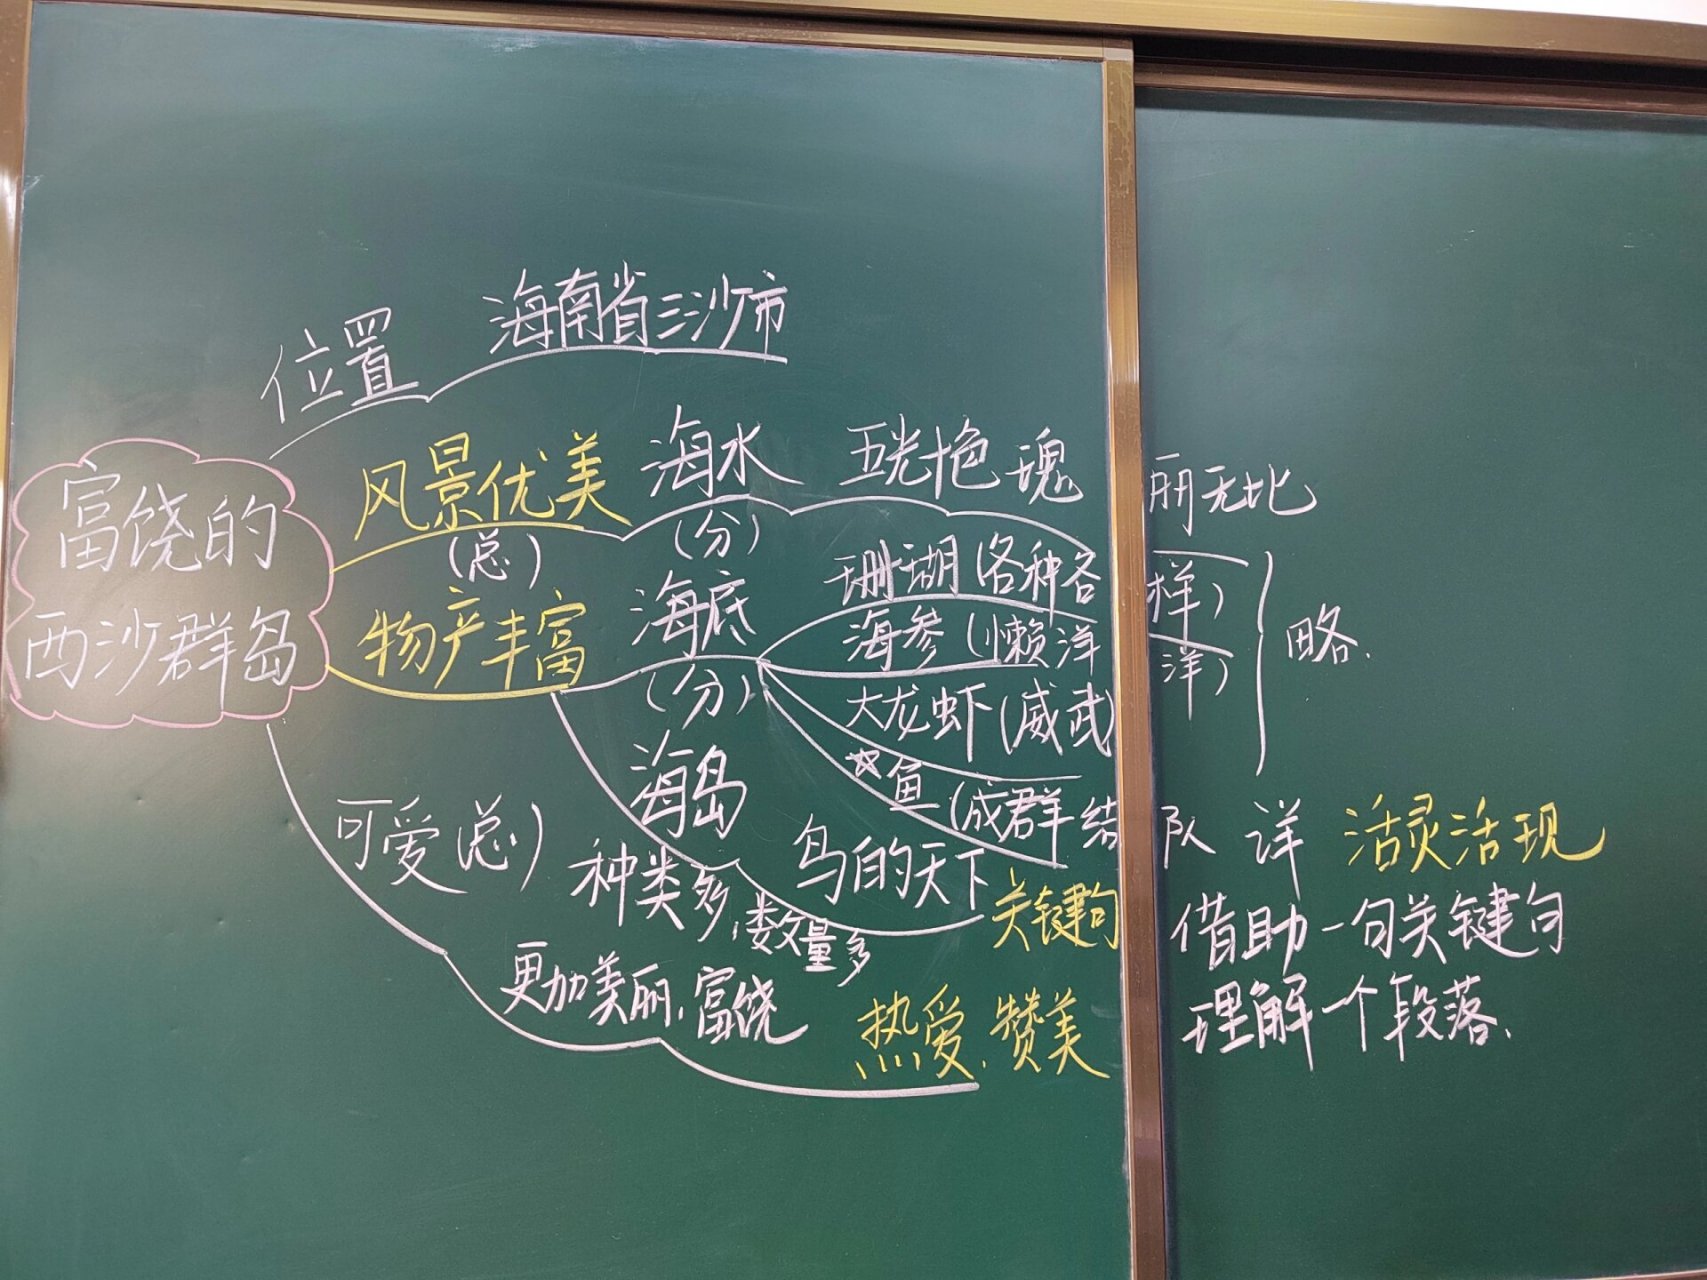 位置 海南省三沙市
富饶的
西沙群岛
风景优美 海水 五光十色 瑰丽无比
(总) (分)
物产丰富 海底 珊瑚(各种各样)
海参(懒洋洋) 略.
(分) 大龙虾(威武)
☆鱼(成群结队 详 活灵活现
海岛 鸟的天下 关键句 借助一句关键句
理解一个段落.
可爱(总) 种类多,数量多
更加美丽.富饶 热爱.赞美